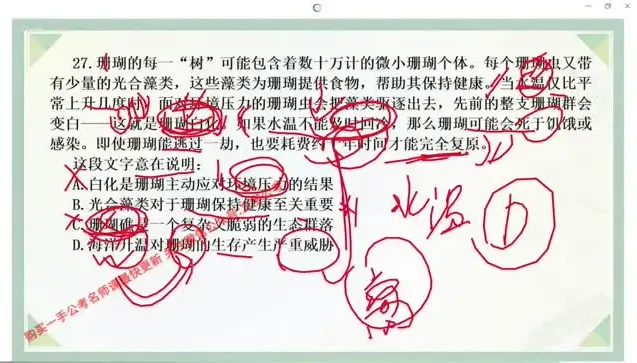 27. 珊瑚的每一“树”可能包含着数十万计的微小珊瑚个体。每个珊瑚虫又带
有少量的光合藻类，这些藻类为珊瑚提供食物，帮助其保持健康。当水温仅比平
常上升几度时，面对环境压力的珊瑚虫会把藻类驱逐出去，先前的整支珊瑚群会
变白——这就是珊瑚白化。如果水温不能及时回冷，那么珊瑚可能会死于饥饿或
感染。即使珊瑚能逃过一劫，也要耗费约 年时间才能完全复原。
这段文字意在说明：
A. 白化是珊瑚主动应对环境压力的结果
B. 光合藻类对于珊瑚保持健康至关重要
C. 珊瑚礁是一个复杂又脆弱的生态群落
D. 海洋升温对珊瑚的生存产生严重威胁
水温
D
购买一手公考名师课最快更新